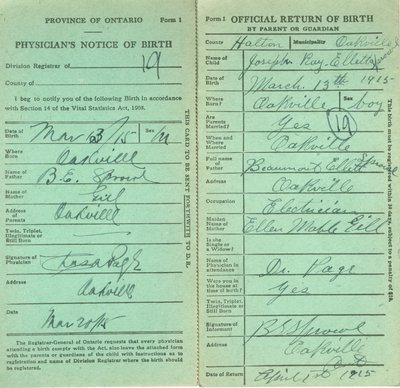 PROVINCE OF ONTARIO Form 1
PHYSICIAN'S NOTICE OF BIRTH
Division Registrar of 19
County of
I beg to notify you of the following Birth in accordance
with Section 14 of the Vital Statistics Act, 1908.
Date of Birth Mar 13/15 Sex M
Where Born Oakville
Name of Father B.E. Sprowl
Name of Mother Gill
Address of Parents Oakville
Twins, Triplet, Illegitimate or Still Born
Signature of Physician
Oakville
Date Mar 20/15
The Registrar-General of Ontario requests that every physician
attending a birth comply with the Act, also leave the attached form
with the parents or guardians of the child with instructions as to
registration and name of Division Registrar where the birth should
be registered.
THIS CARD TO BE SENT FORTHWITH TO D.R.
Form 1 OFFICIAL RETURN OF BIRTH
BY PARENT OR GUARDIAN
County Halton Municipality Oakville
Name of Child Joseph Ray Elliott Sprowl
Date of Birth March 13th 1915
Where Born? Oakville Sex boy
Are Parents Married? Yes 19
When and Where Married Oakville
Full name of Father Beaumont Elliott Sprowl
Address Oakville
Occupation Electrician
Maiden Name of Mother Ellen Mable Gill
Is she Single or a Widow?
Name of Physician in attendance Dr. Page
Were you in the house at time of birth? Yes
Twin, Triplet, Illegitimate or Still Born
Signature of Informant B E Sprowl
Address Oakville
Date of Return April 1915
This birth must be registered within 30 days, subject to a penalty of $10.